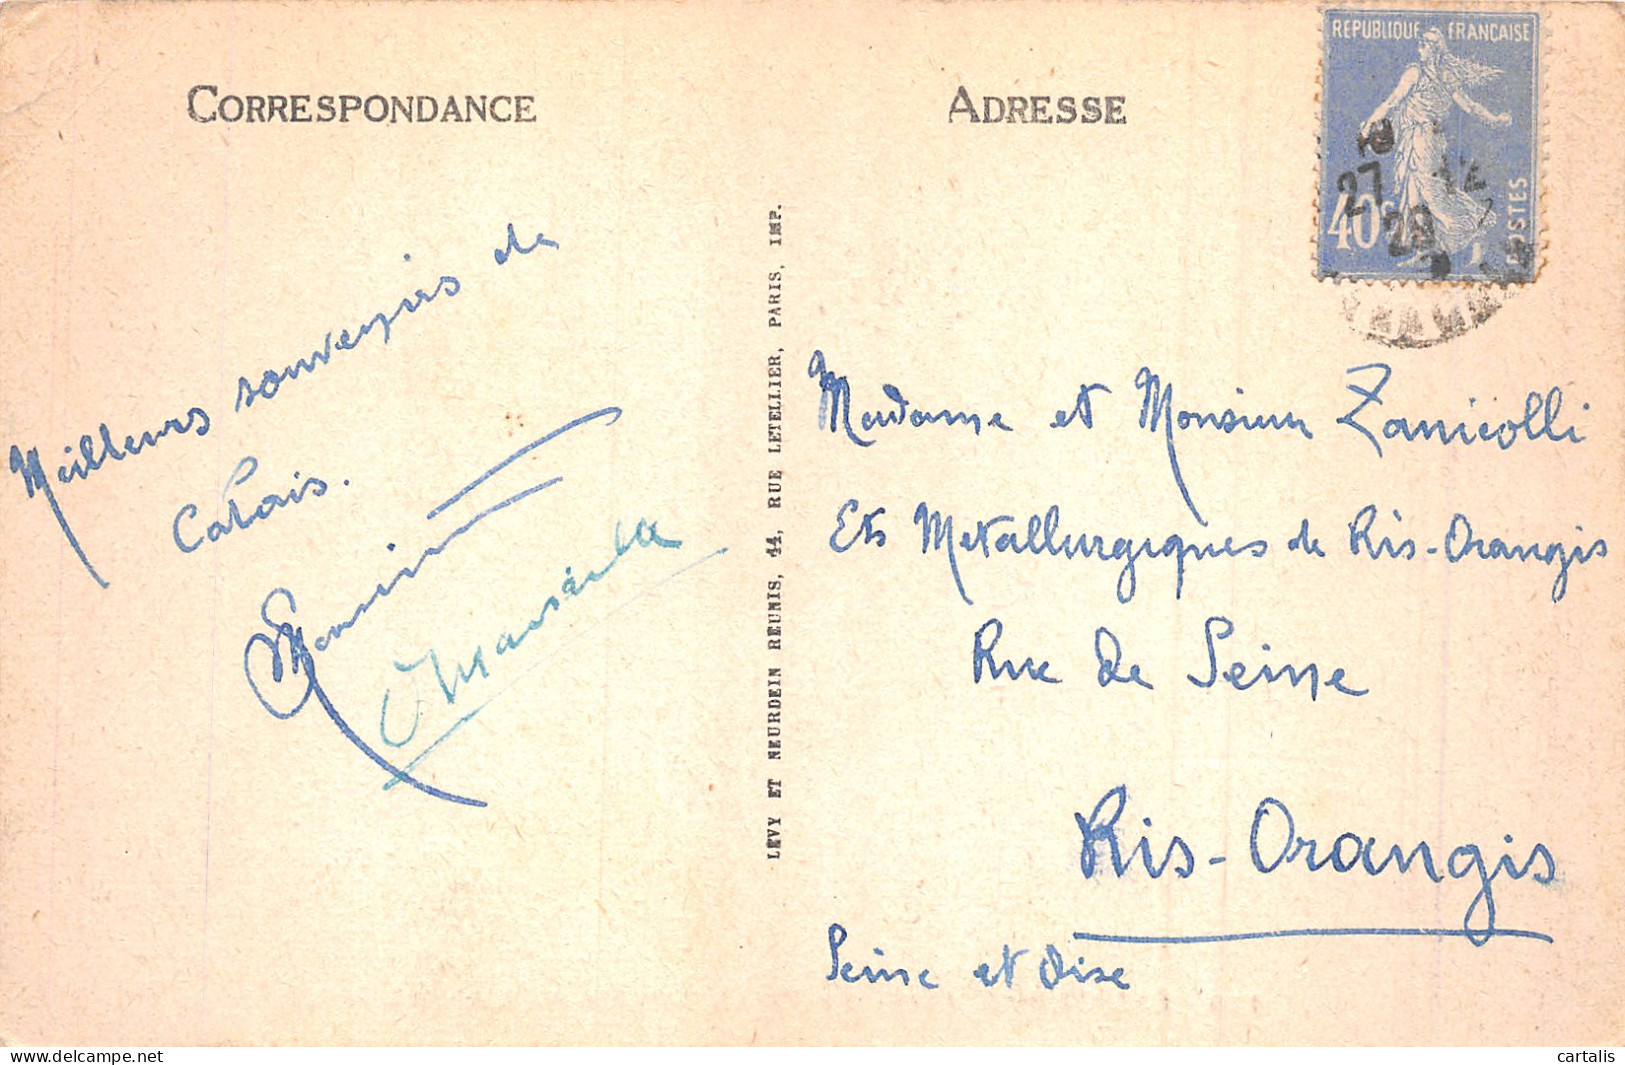 CORRESPONDANCE
Meilleurs souvenirs de
Calais.
ADRESSE
REPUBLIQUE FRANÇAISE
40c
POSTES
27
12
28
LEVY ET NEURDEIN RÉUNIS, 44, RUE LETELLIER, PARIS, IMP.
Madame et Monsieur Zanicolli
Ets Metallurgiques de Ris-Orangis
Rue de Seine
Ris-Orangis
Seine et Oise
www.delcampe.net
cartalis